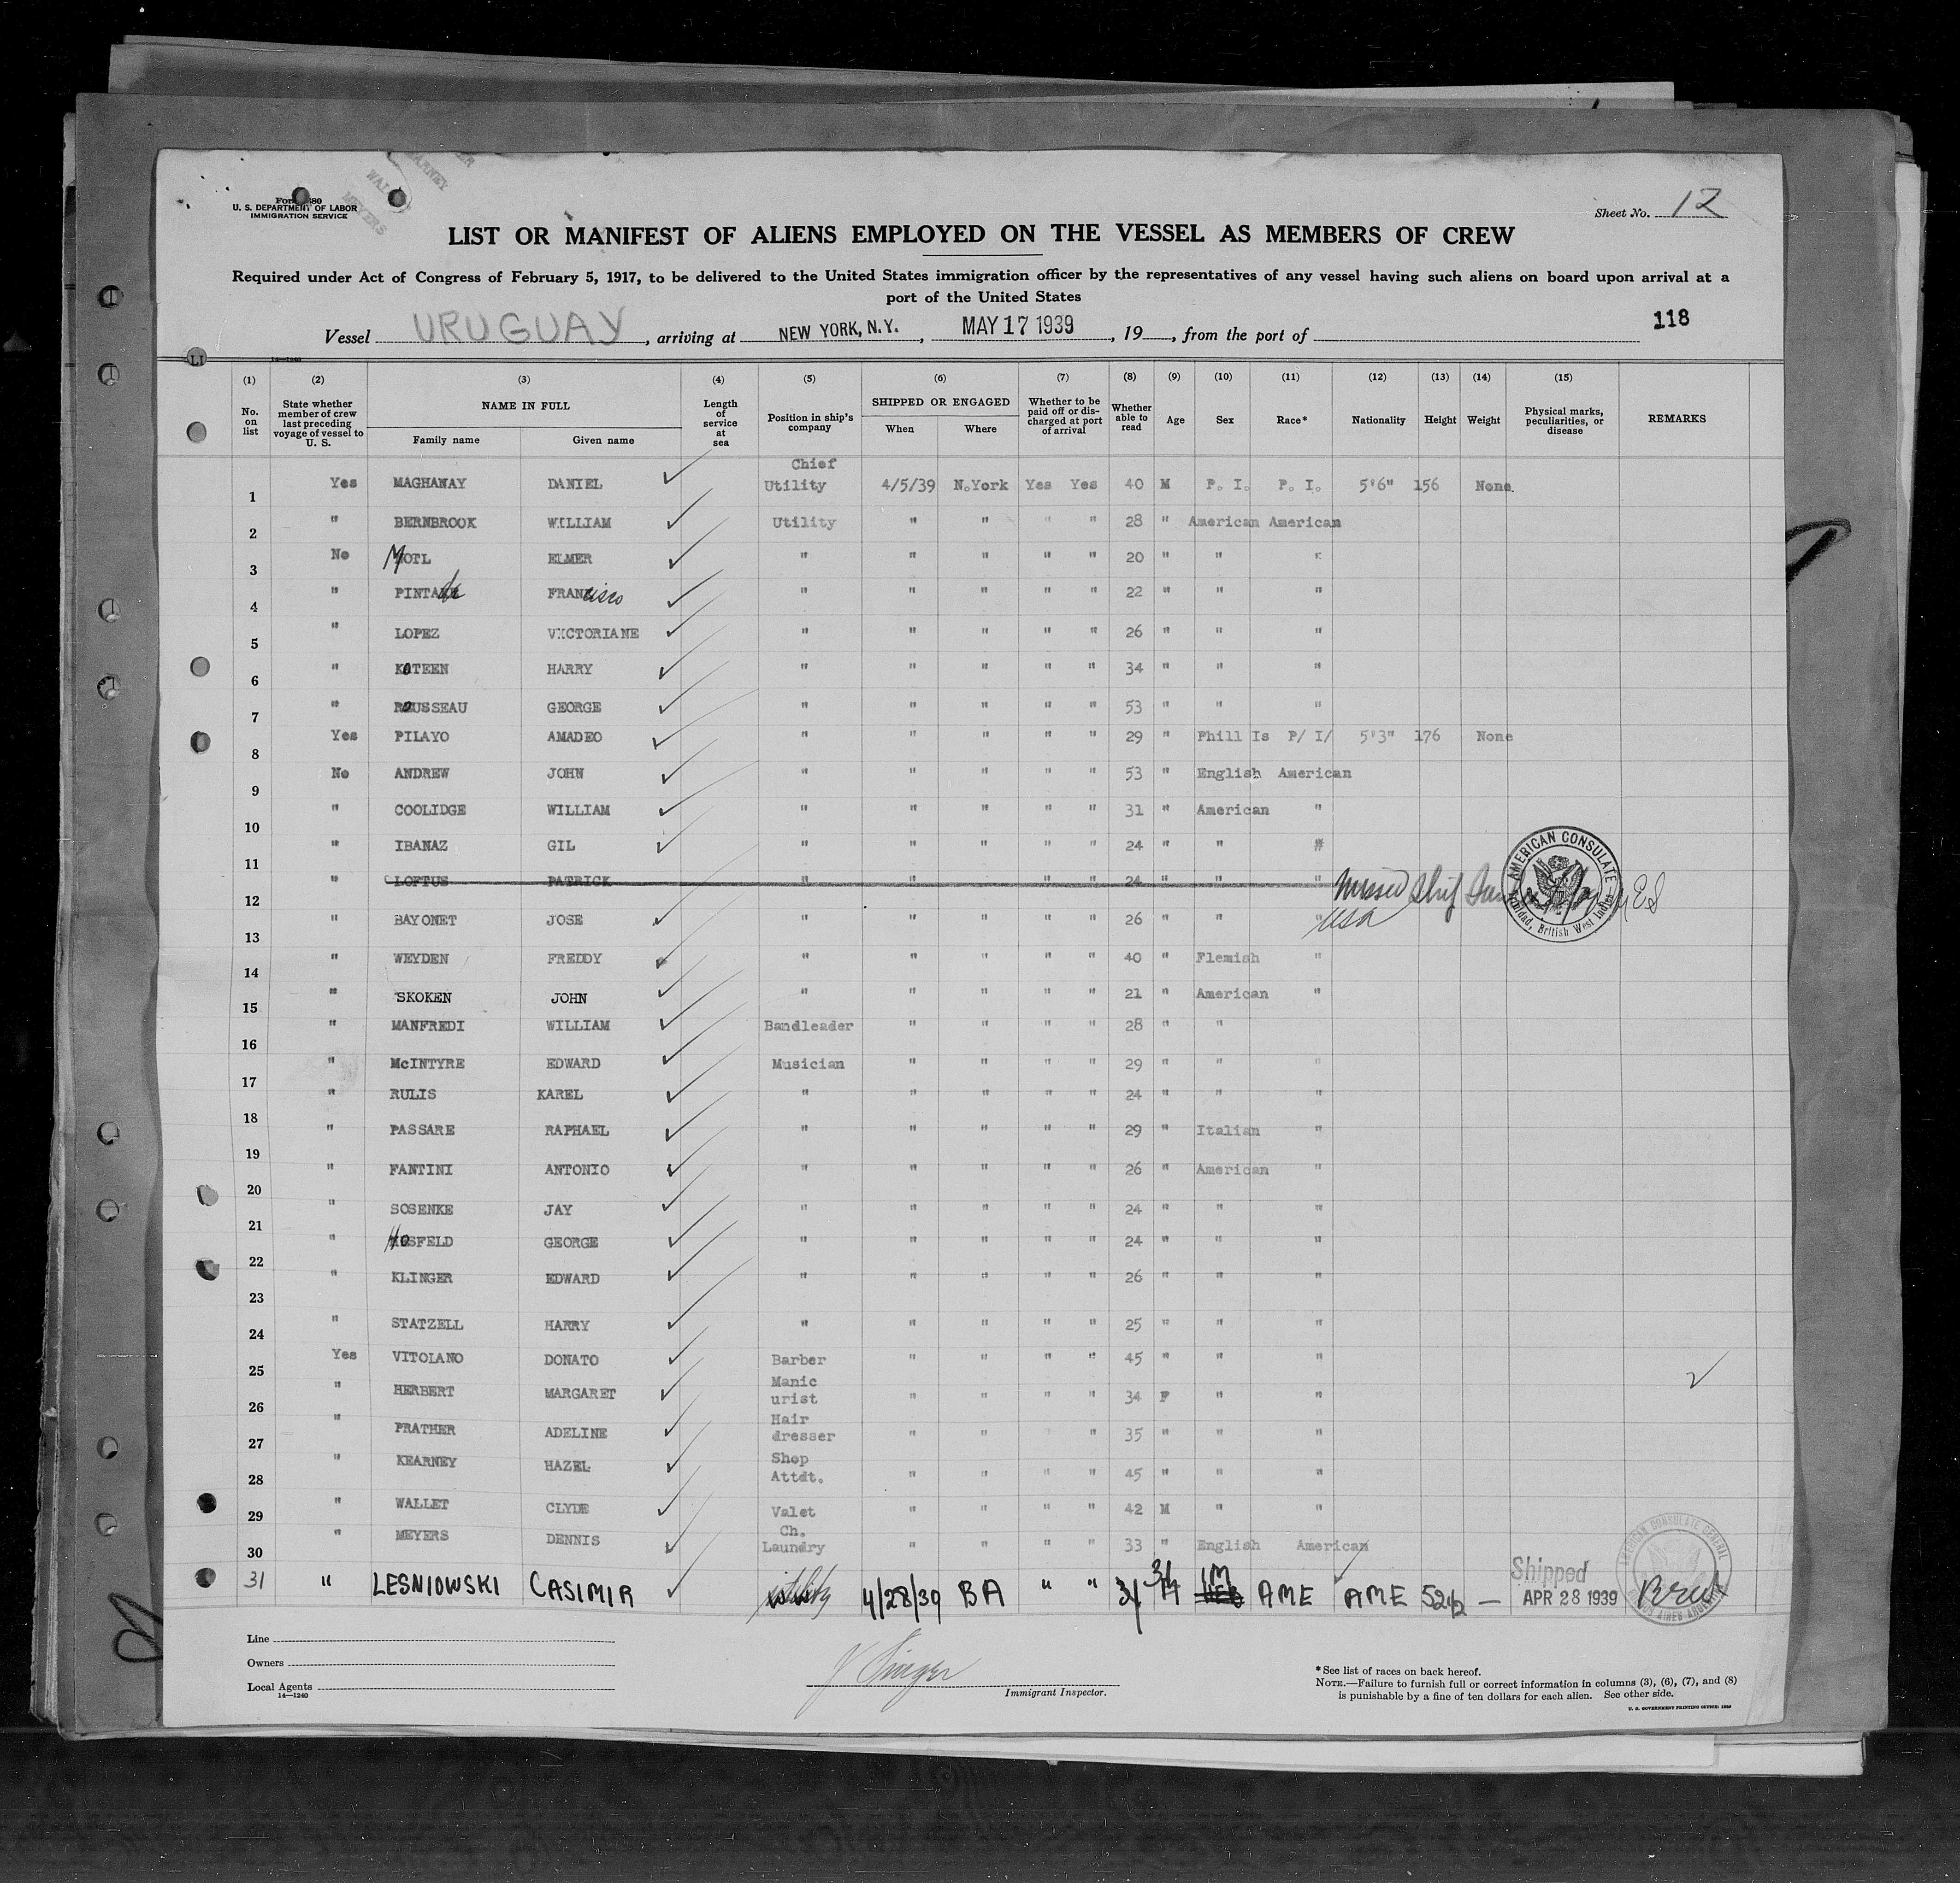 Form 680
U. S. DEPARTMENT OF LABOR
IMMIGRATION SERVICE
ARNEY
WAL
MEYERS
Sheet No. 12
LIST OR MANIFEST OF ALIENS EMPLOYED ON THE VESSEL AS MEMBERS OF CREW
Required under Act of Congress of February 5, 1917, to be delivered to the United States immigration officer by the representatives of any vessel having such aliens on board upon arrival at a
port of the United States
118
Vessel URUGUAY, arriving at NEW YORK, N.Y., MAY 17 1939, 19, from the port of
14—1240
(1) (2) (3) (4) (5) (6) (7) (8) (9) (10) (11) (12) (13) (14) (15)
No. on list
State whether member of crew last preceding voyage of vessel to U. S.
NAME IN FULL
Family name Given name
Length of service at sea
Position in ship's company
SHIPPED OR ENGAGED
When Where
Whether to be paid off or discharged at port of arrival
Whether able to read
Age Sex Race* Nationality Height Weight
Physical marks, peculiarities, or disease
REMARKS
1 Yes MAGHANAY DANIEL Chief Utility 4/5/39 N.York Yes Yes 40 M P. I. P. I. 5'6" 156 None
2 " BERNBROOK WILLIAM Utility " " " " 28 " American American
3 No MOTL ELMER " " " " " 20 " " "
4 " PINTA FRANcisco " " " " " 22 " " "
5 " LOPEZ VICTORIANE " " " " " 26 " " "
6 " KOTEEN HARRY " " " " " 34 " " "
7 " ROUSSEAU GEORGE " " " " " 53 " " "
8 Yes PILAYO AMADEO " " " " " 29 " Phill Is P/ I/ 5'3" 176 None
9 No ANDREW JOHN " " " " " 53 " English American
10 " COOLIDGE WILLIAM " " " " " 31 " American "
11 " IBANAZ GIL " " " " " 24 " " "
12 " LOFTUS PATRICK " " " " " 24 " " " Missed Ship
AMERICAN CONSULATE
Trinidad, British West Indies
13 " BAYONET JOSE " " " " " 26 " " " USA
14 " WEYDEN FREDDY " " " " " 40 " Flemish "
15 " SKOKEN JOHN " " " " " 21 " American "
16 " MANFREDI WILLIAM Bandleader " " " " 28 " "
17 " McINTYRE EDWARD Musician " " " " 29 " " "
18 " RULIS KAREL " " " " " 24 " " "
19 " PASSARE RAPHAEL " " " " " 29 " Italian "
20 " FANTINI ANTONIO " " " " " 26 " American "
21 " SOSENKE JAY " " " " " 24 " " "
22 " HOSFELD GEORGE " " " " " 24 " " "
23 " KLINGER EDWARD " " " " " 26 " " "
24 " STATZELL HARRY " " " " " 25 " " "
25 Yes VITOLANO DONATO Barber " " " " 45 " " "
26 " HERBERT MARGARET Manic urist " " " " 34 F " "
27 " PRATHER ADELINE Hair dresser " " " 35 " " "
28 " KEARNEY HAZEL Shop Attdt. " " " " 45 " " "
29 " WALLET CLYDE Valet " " " " 42 M " "
30 " MEYERS DENNIS Ch. Laundry " " " " 33 " English American
31 " LESNIOWSKI CASIMIR utility 4/28/39 BA " " 31 M AME AME 52 1/2 — Shipped APR 28 1939
AMERICAN CONSULATE GENERAL
BUENOS AIRES ARGENTINA
Line
Owners
Local Agents
14—1240
J Singer
Immigrant Inspector.
*See list of races on back hereof.
NOTE.—Failure to furnish full or correct information in columns (3), (6), (7), and (8)
is punishable by a fine of ten dollars for each alien. See other side.
U. S. GOVERNMENT PRINTING OFFICE: 1938